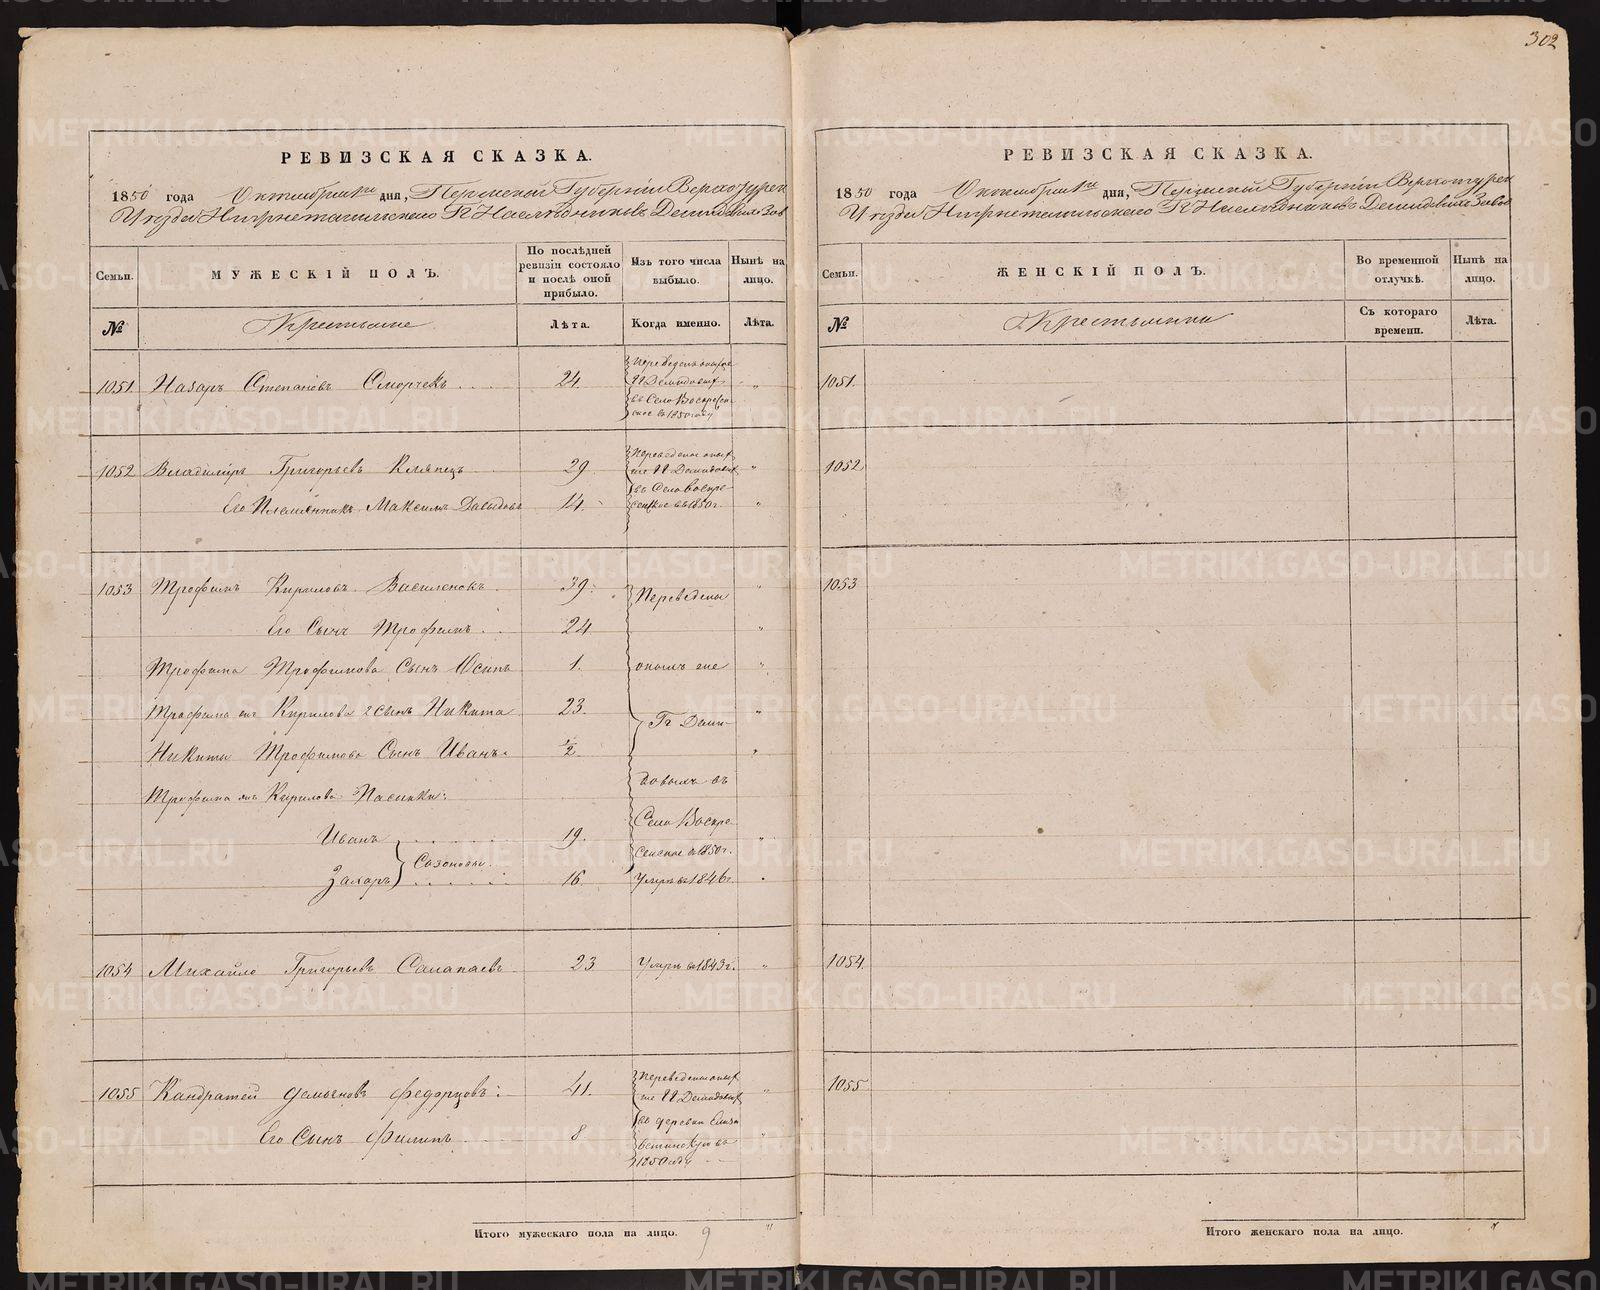 302
РЕВИЗСКАЯ СКАЗКА.
1850 года Октября дня, Пермской Губернии Верхотурск
Уезда Нижнетагильскаго Гг Наследников Демидовых Завод
Семьи.
МУЖЕСКІЙ ПОЛЪ.
По послѣдней ревизіи состояло и послѣ оной прибыло.
Изъ того числа выбыло.
Нынѣ на лицо.
№
Крестьяне
Лѣта.
Когда именно.
Лѣта.
1051 Назаръ Степановъ Сморчекъ 24 Переведенъ оными Гг Демидовых въ Село Воскресенское въ 1850 году "
1052 Владиміръ Григорьевъ 29 Переведены оными же Гг Демидовых "
Его Племянникъ Максимъ Давыдовъ 14. въ Село Воскресенское въ 1850 г. "
1053 Трофимъ Кириловъ Василенокъ 39. Переведены "
Его Сынъ Трофимъ 24 "
Трофима Трофимова Сынъ Осипъ 1. оными же "
Трофима Кирилова 2 Сынъ Никита 23. Гг Деми- "
Никиты Трофимова Сынъ Иванъ 1/2 "
Трофима Кирилова Пасынки: довыхъ въ
Иванъ 19. Село Воскре- "
Сазоновы сенское въ 1850 г.
Захаръ 16. Умеръ въ 1846 г. "
1054 Михайло Григорьевъ 23 Умеръ въ 1843 г. "
1055 Кандратей Демьяновъ Федорцовъ 41. Переведены оными же Гг Демидовых "
Его Сынъ Филипъ 8 въ деревню 1850 году "
Итого мужескаго пола на лицо. 9 "
РЕВИЗСКАЯ СКАЗКА.
1850 года Октября дня, Пермской Губерніи Верхотурск
Уезда Нижнетагильскаго Гг Наследниковъ Демидовыхъ Завод
Семьи.
ЖЕНСКІЙ ПОЛЪ.
Во временной отлучкѣ.
Нынѣ на лицо.
№
Крестьянки
Съ котораго времени.
Лѣта.
1051.
1052
1053
1054.
1055
Итого женскаго пола на лицо. "
METRIKI.GASO-URAL.RU